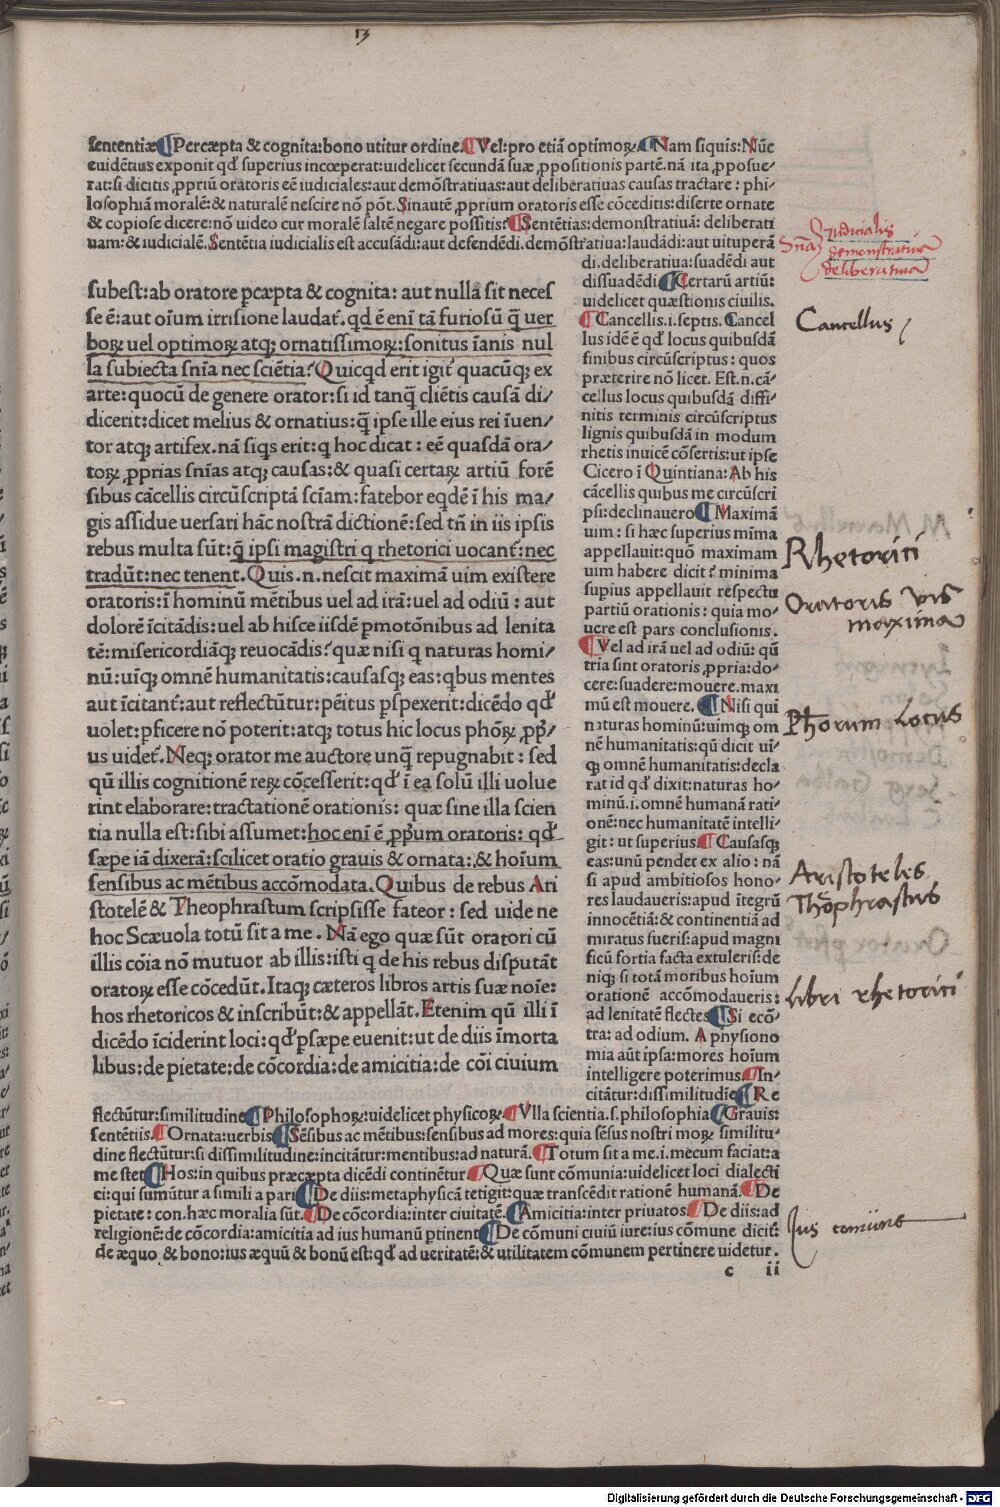 13
sententiæ ¶ Percæpta & cognita: bono utitur ordine. ¶ Vel: pro etiã optimoꝝ. ¶ Nam siquis: Nũc
euidẽtius exponit qď superius incœperat: uidelicet secundã suæ ꝓpositionis partẽ. nã ita ꝓposue/
rat: si dicitis ꝓpriũ oratoris eẽ iudiciales: aut demõstratiuas: aut deliberatiuas causas tractare: phi/
losophiã moralẽ: & naturalẽ nescire nõ põt. Sinautẽ ꝓprium oratoris esse cõceditis: diserte ornate
& copiose dicere: nõ uideo cur moralẽ saltẽ negare possitis? ¶ Sentẽtias: demonstratiuã: deliberati
uam: & iudicialẽ. Sentẽtia iudicialis est accusãdi: aut defendẽdi. demõstratiua: laudãdi: aut uituperã
di. deliberatiua: suadẽdi aut
dissuadẽdi ¶ Certarũ artiũ:
uidelicet quæstionis ciuilis.
¶ Cancellis .i. septis. Cancel
lus idẽ ẽ qď locus quibusdã
finibus circũscriptus: quos
præterire nõ licet. Est .n. cã/
cellus locus quibusdã diffi/
nitis terminis circũscriptus
lignis quibusdã in modum
rhetis inuicẽ cõsertis: ut ipse
Cicero ĩ Quintiana: Ab his
cãcellis quibus me circũscri
psi: declinauero ¶ Maximã
uim: si hæc superius mĩma
appellauit: quõ maximam
uim habere dicit? minima
supius appellauit respectu
partiũ orationis: quia mo/
uere est pars conclusionis.
¶ Vel ad irã uel ad odiũ: qũ
tria sint oratoris ꝓpria: do/
cere: suadere: mouere. maxi
mũ est mouere. ¶ Nisi qui
naturas hominũ: uimqꝫ om
nẽ humanitatis: qũ dicit uĩ/
qꝫ omnẽ humanitatis: decla
rat id qď dixit: naturas ho/
minũ .i. omnẽ humanã rati/
onẽ: nec humanitatẽ intelli/
git: ut superius. ¶ Causasqꝫ
eas: unũ pendet ex alio: nã
si apud ambitiosos hono/
res laudaueris: apud ĩtegrũ
innocẽtiã: & continentiã ad
miratus fueris: apud magni
ficũ fortia facta extuleris: de
niqꝫ si totã moribus hoĩum
orationẽ accõmodaueris:
ad lenitatẽ flectes ¶ Si ecõ/
tra: ad odium. A physiono
mia aũt ipsa: mores hoĩum
intelligere poterimus. ¶ In/
citãtur: dissimilitudie ¶ Re
subest: ab oratore pcæpta & cognita: aut nulla sit neces
se ẽ: aut oĩum irrisione laudat̃. qď ẽ enĩ tã furiosũ q̃ uer
boꝝ uel optimoꝝ atqꝫ ornatissimoꝝ: sonitus ĩanis nul
la subiecta sñia nec sciẽtia? Quicqď erit igit̃ quacũqꝫ ex
arte: quocũ de genere orator: si id tanq̃ cliẽtis causã di/
dicerit: dicet melius & ornatius: q̃ ipse ille eius rei ĩuen/
tor atqꝫ artifex. nã siqs erit: q hoc dicat: eẽ quasdã ora/
toꝝ ꝓprias sñias atqꝫ causas: & quasi certaꝝ artiũ forẽ
sibus cãcellis circũscriptã sciẽam: fatebor eqdẽ ĩ his ma/
gis assidue uersari hãc nostrã dictionẽ: sed tñ in iis ipsis
rebus multa sũt: q̃ ipsi magistri q rhetorici uocant̃: nec
tradũt: nec tenent. Quis .n. nescit maximã uim existere
oratoris: ĩ hominũ mẽtibus uel ad irã: uel ad odiũ: aut
dolorẽ ĩcitãdis: uel ab hisce iisdẽ pmotõnibus ad lenita
tẽ: misericordiãqꝫ reuocãdis? quæ nisi q naturas homi/
nũ: uĩqꝫ omnẽ humanitatis: causasqꝫ eas: qbus mentes
aut ĩcitant̃: aut reflectũtur: pẽitus pspexerit: dicẽdo qď
uolet: pficere nõ poterit: atqꝫ totus hic locus phõꝝ ꝓp̃/
us uidet̃. Neqꝫ orator me auctore unq̃ repugnabit: sed
qũ illis cognitionẽ reꝝ cõcesserit: qď ĩ ea solũ illi uolue
rint elaborare: tractationẽ orationis: quæ sine illa scien
tia nulla est: sibi assumet: hoc enĩ ẽ ꝓp̃um oratoris: qď
sæpe iã dixerã: scilicet oratio grauis & ornata: & hoĩum
sensibus ac mẽtibus accõmodata. Quibus de rebus Ari
stotelẽ & Theophrastum scripsisse fateor: sed uide ne
hoc Scæuola totũ sit a me. Nã ego quæ sũt oratori cũ
illis cõia nõ mutuor ab illis: isti q de his rebus disputãt
oratoꝝ esse cõcedũt. Itaqꝫ cæteros libros artis suæ noĩe:
hos rhetoricos & inscribũt: & appellãt. Etenim qũ illi ĩ
dicẽdo ĩciderint loci: qď psæpe euenit: ut de diis ĩmorta
libus: de pietate: de cõcordia: de amicitia: de cõi ciuium
flectũtur: similitudine ¶ Philosophoꝝ: uidelicet physicoꝝ. ¶ Vlla scientia .s. philosophia ¶ Grauis:
sentẽtiis. ¶ Ornata: uerbis ¶ Sẽsibus ac mẽtibus: sensibus ad mores: quia sẽsus nostri moꝝ similitu/
dine flectũtur: si dissimilitudine: incitãtur: mentibus: ad naturã. ¶ Totum sit a me .i. mecum faciat: a
me stet ¶ Hos: in quibus præcæpta dicẽdi continẽtur ¶ Quæ sunt cõmunia: uidelicet loci dialecti
ci: qui sumũtur a simili a pari ¶ De diis: metaphysicã tetigit: quæ transcẽdit rationẽ humanã. ¶ De
pietate: con. hæc moralia sũt. ¶ De cõcordia: inter ciuitatẽ. ¶ Amicitia: inter priuatos ¶ De diis: ad
religionẽ: de cõcordia: amicitia ad ius humanũ ptinent ¶ De cõmuni ciuiũ iure: ius cõmune dicit̃:
de æquo & bono: ius æquũ & bonũ est: qď ad ueritatẽ: & utilitatem cõmunem pertinere uidetur.
c ii
Sñia
Judicialis
demonstratiua
deliberatiua
Cancellus
Rhetorici
Oratoris vis
maxima
Phorum Locus
Aristoteles
Theophrastus
Libri rhetorici
Jus comũne
Digitalisierung gefördert durch die Deutsche Forschungsgemeinschaft - DFG